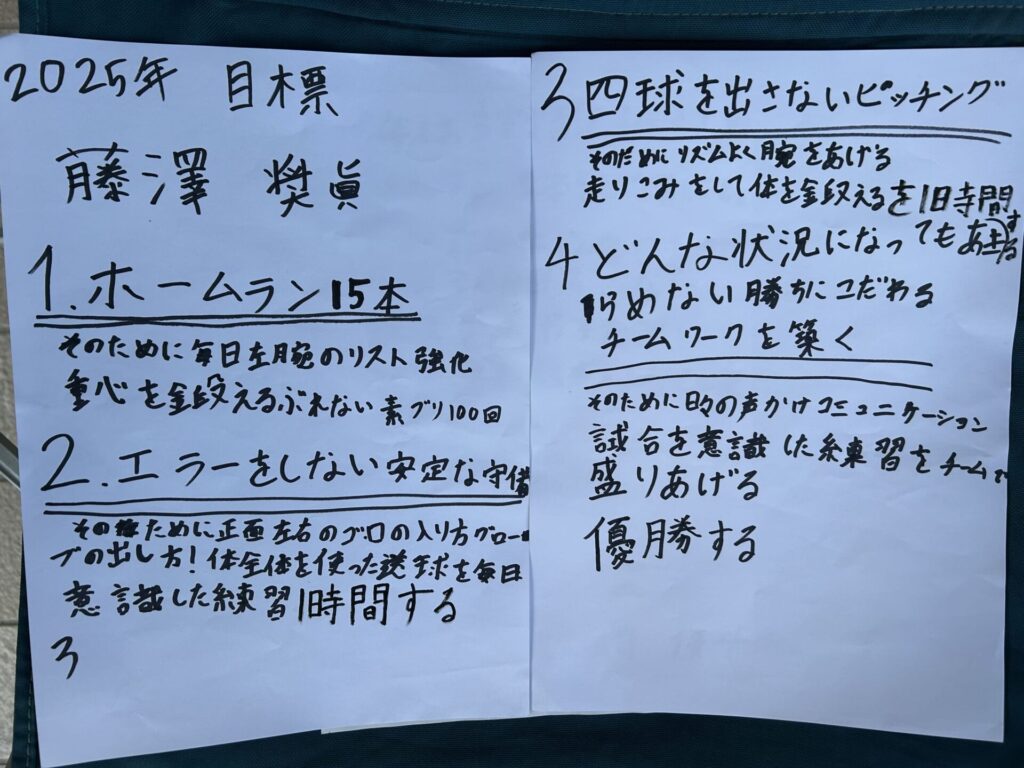 2025年 目標
藤澤 奨眞
1.ホームラン15本
そのために毎日左腕のリスト強化
重心を鍛えるぶれない素ブリ100回
2.エラーをしない安定な守備
そのために正面左右のゴロの入り方グロー
ブの出し方!体全体を使った送球を毎日
意識した練習1時間する
3
3四球を出さないピッチング
そのためにリズムよく腕をあげる
走りこみをして体を鍛えるを1日1時間する
4どんな状況になってもあき
らめない勝ちにこだわる
チームワークを築く
そのために日々の声かけコミュニケーション
試合を意識した練習をチームで
盛りあげる
優勝する